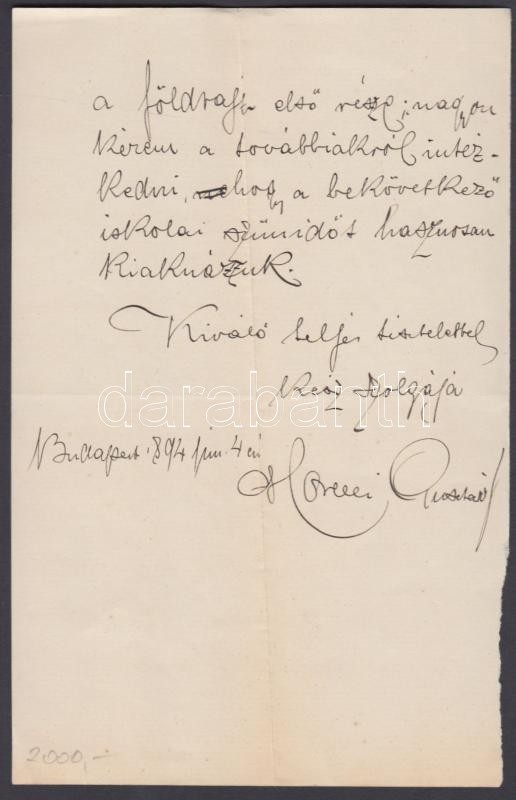 a földrajz első része; nagyon
kérem a továbbiakról intéz-
kedni, hogy a bekövetkező
iskolai szünidőt hasznosan
kiaknázzuk.
Kiváló teljes tisztelettel
kész szolgája
darabanth
Budapest 894 jun. 4 én
Morelli Gusztáv
2000,-